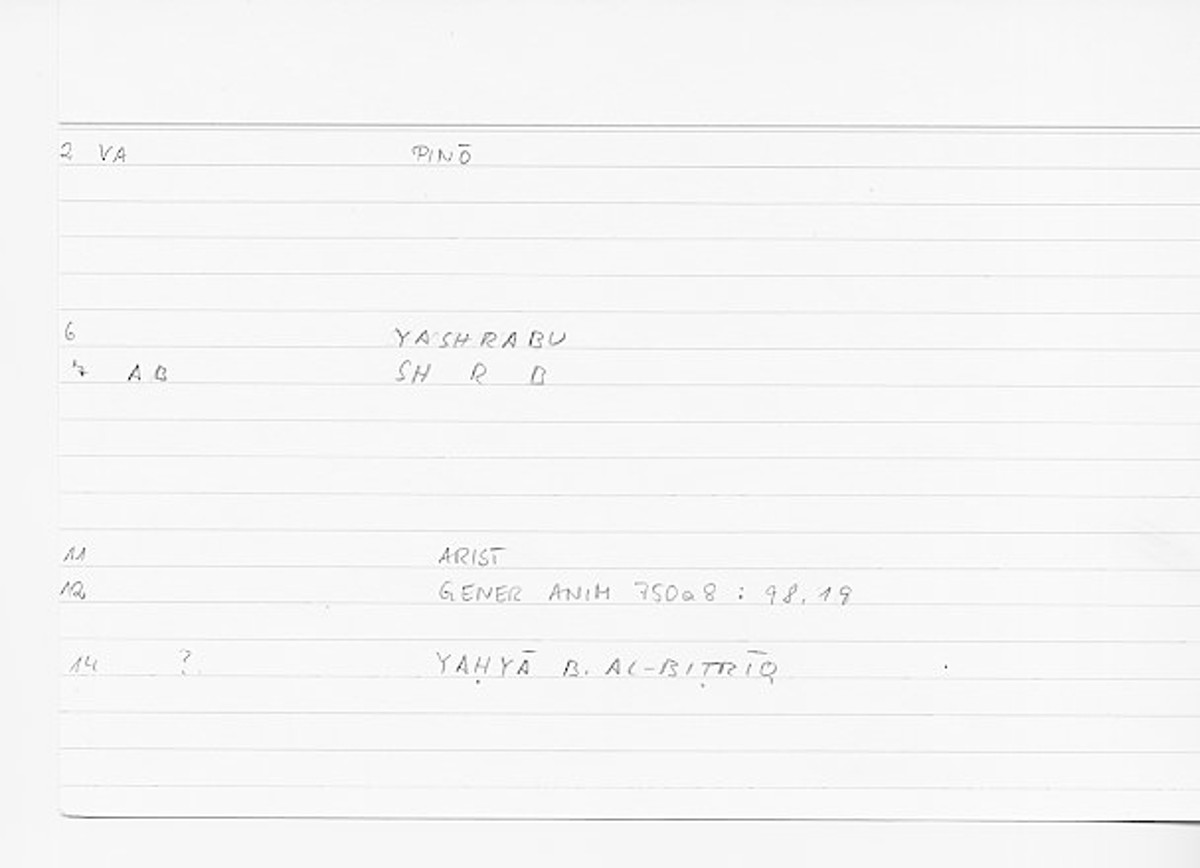 2 VA PINŌ
6 YASHRABU
7 AB SH R B
11 ARIST
12 GENER ANIM 750a8 : 98,19
14 ? YAḤYĀ B. AL-BIṬRĪQ